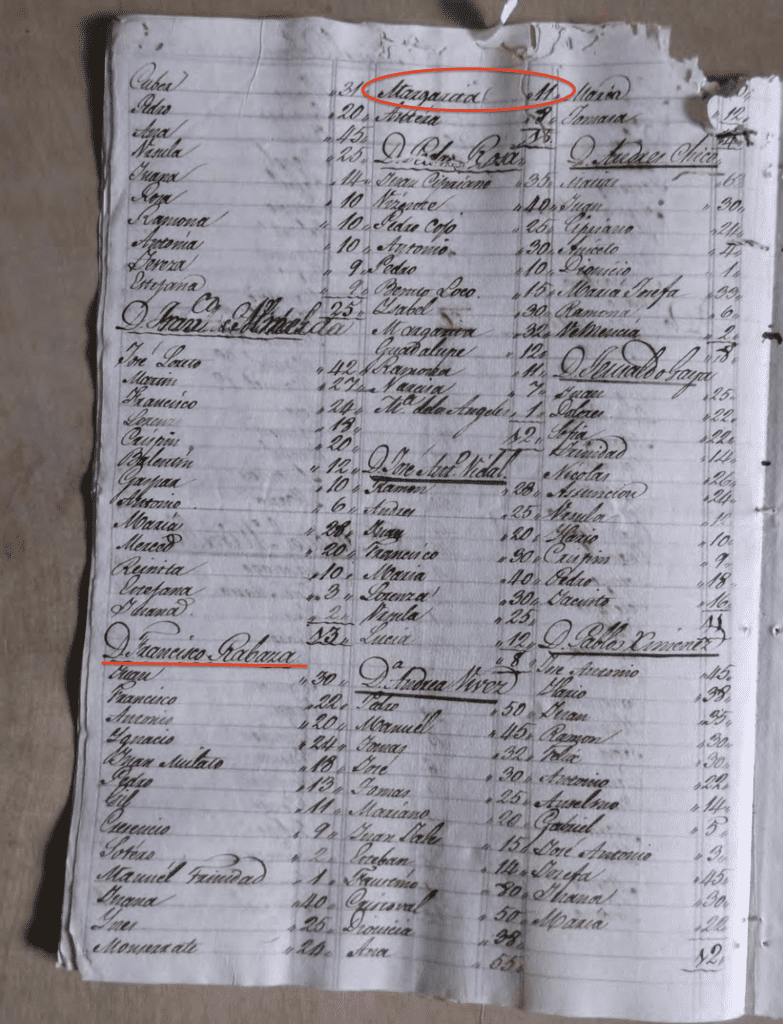 Cuber 31
Pedro 20
Ana 45
Ninfa 25
Juana 14
Rosa 10
Ramona 10
Antonia 10
Tereza 9
Estefana 9
25
D. Fran.co
José Lonco 42
Martin 27
Francisco 24
Lorenzo 18
Crispin 20
Balentin 12
Gaspar 10
Antonio 6
Maria 28
Merced 20
Reinita 10
Estefana 3
Juana 2
13
D. Francisco Rabaza
Juan 30
Francisco 22
Antonio 20
Ygnacio 24
Juan Mulato 18
Pedro 13
Gil 11
Cresencio 9
Sotero 2
Manuel Trinidad 1
Juana 40
Ynes 25
Monserrate 24
Margarita 11
Antera 8
18
D. Pedro Rosa
Juan Cipriano 35
Vizente 40
Pedro Coso 25
Antonio 30
Pedro 10
Benito Loco 15
Ysabel 30
Margarita 32
Guadalupe 12
Ramona 11
Narcisa 7
M.a de los Angeles 1
12
D. José Ant.o Vidal
Ramon 28
Andres 25
Juan 20
Francisco 30
Maria 40
Lorenza 30
Ursula 25
Lucia 12
8
D.a Andrea Nivez
Pedro 50
Manuél 45
Tomas 32
José 30
Tomas 25
Mariano 20
Juan 15
Esteban 14
Faustino 80
Cristoval 50
Dionicia 38
Ana 55
Maria
Tomasa 12
D. Andres Chico
Matias 6
Juan 30
Cipriano 24
Aniceto 4
Dionicio 1
Maria Josefa 33
Ramona 6
Nemencia 2
8
D.
Juan 25
Dolores 22
Sofia 22
Trinidad 14
Nicolas 26
Assuncion 24
Ursula 12
Ylario 10
Crispin 9
Pedro 18
Jacinto 16
11
D. Pablo Ximenez
José Antonio 45
Ylario 38
Juan 35
Ramon 30
Felix 30
Antonio 22
Anselmo 14
Gabriel 5
José Antonio 3
Josefa 45
Juana 30
Maria 22
12